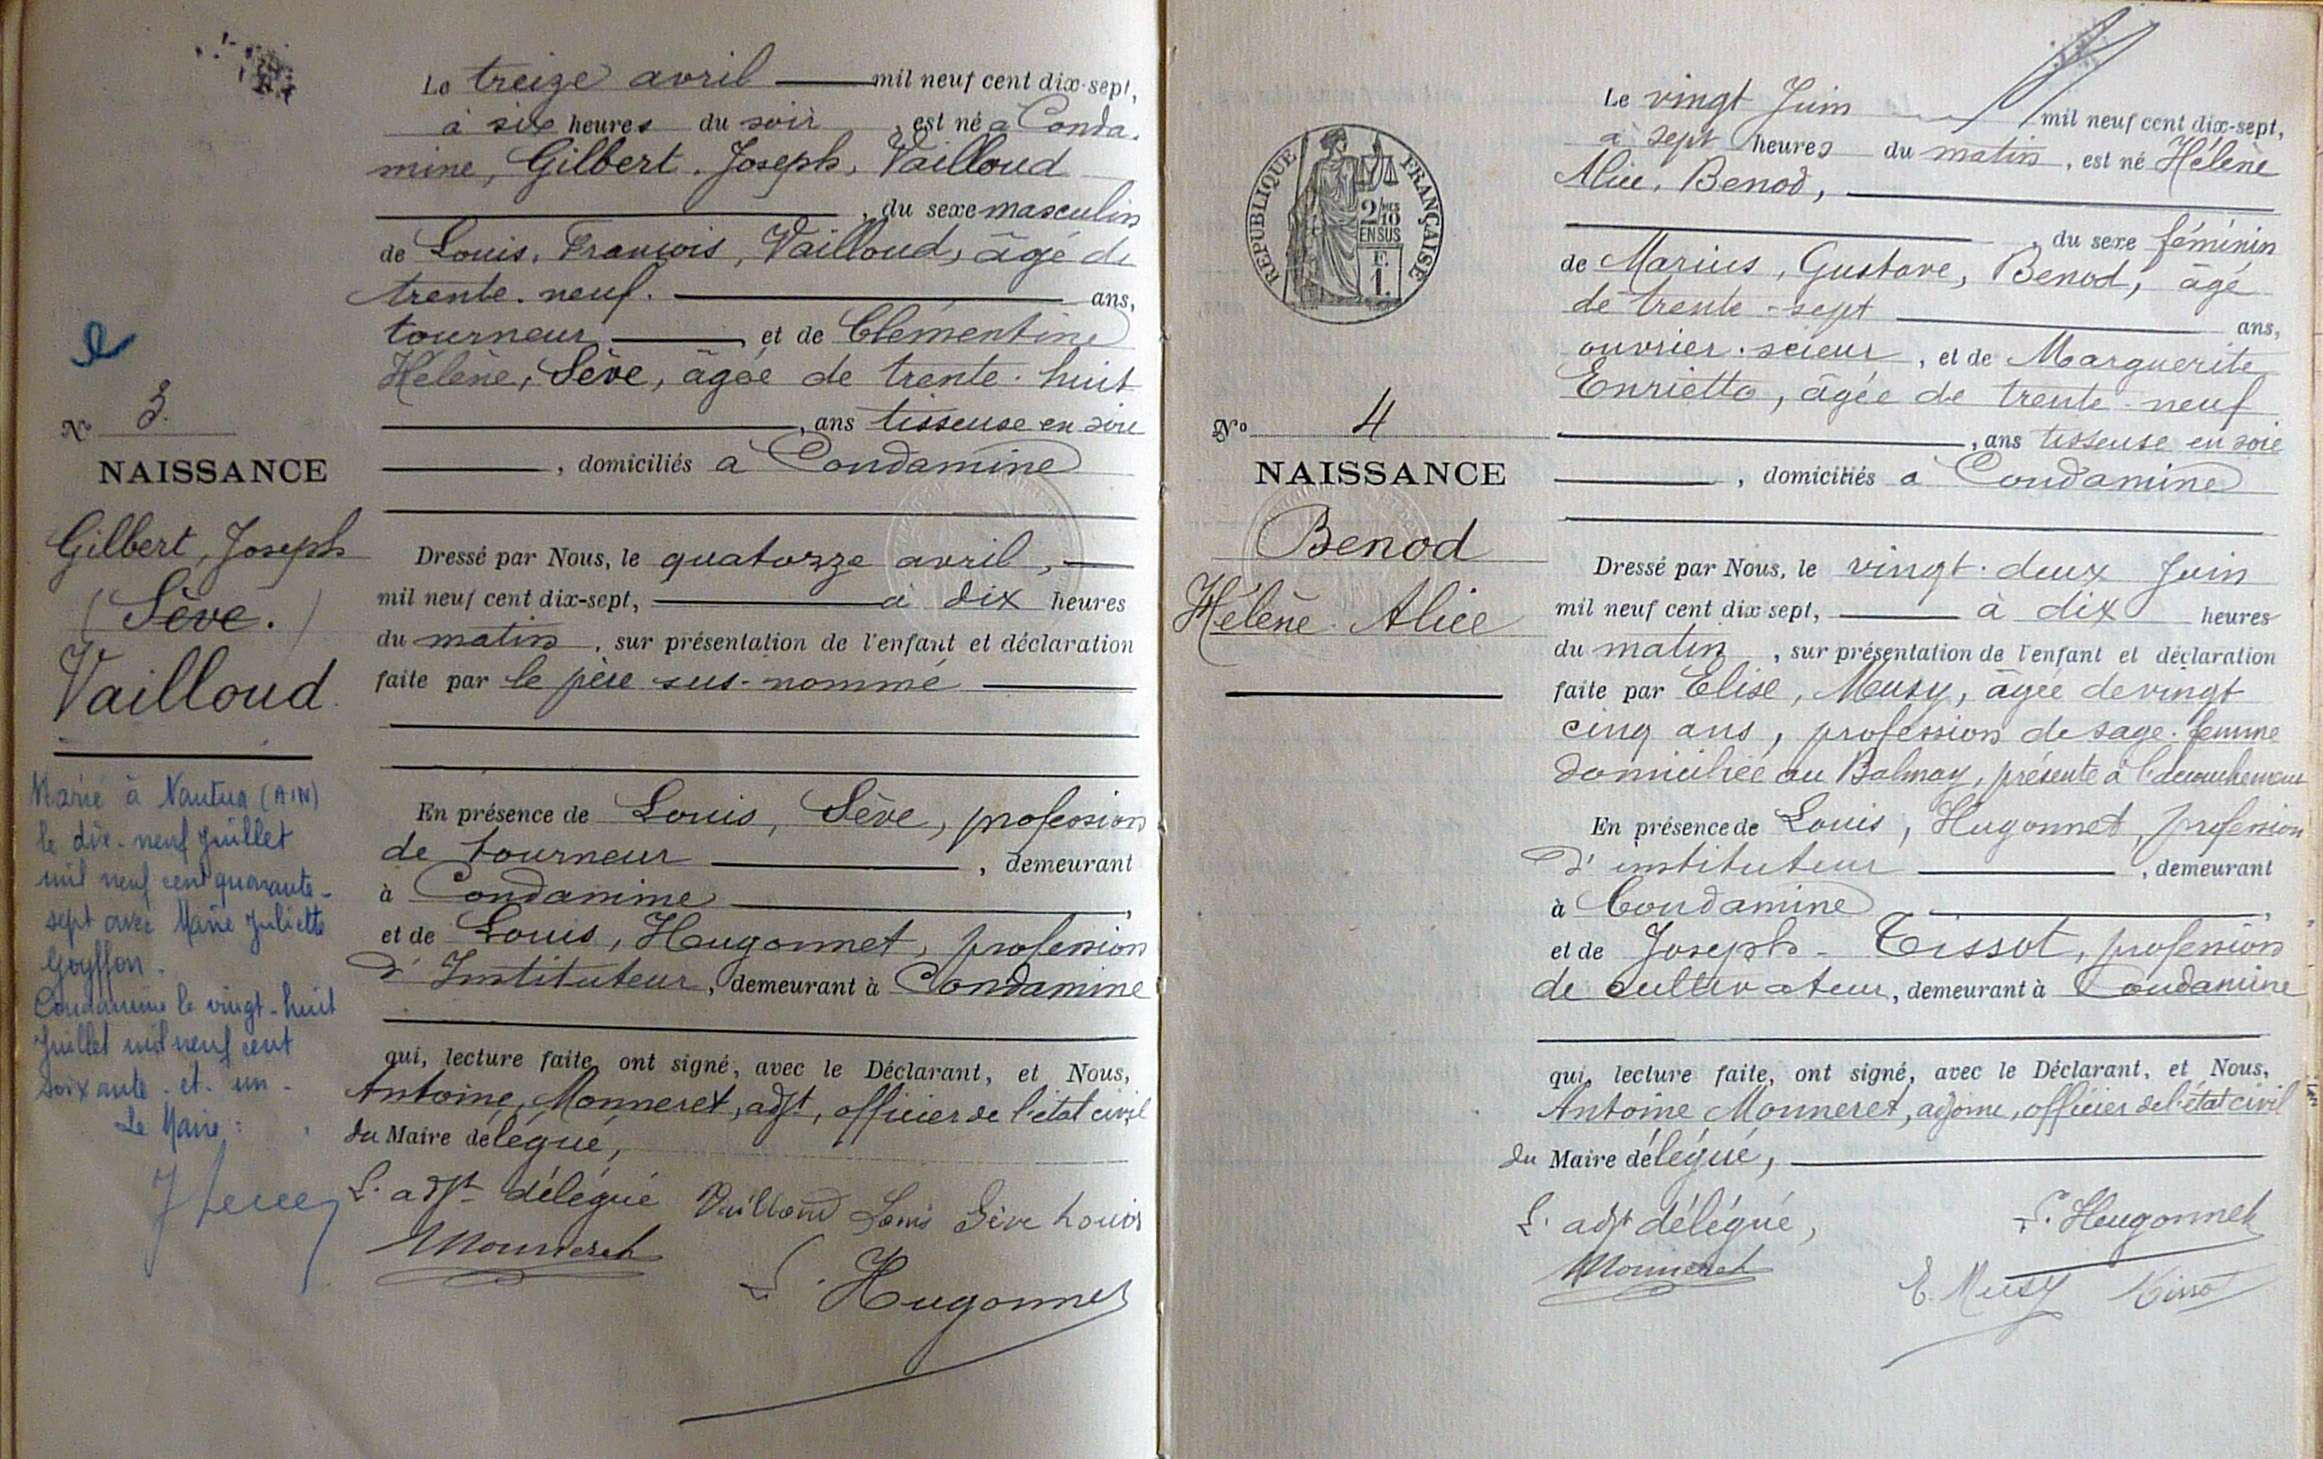 Le treize avril mil neuf cent dix-sept,
à six heures du soir, est né à Conda-
mine, Gilbert, Joseph, Vailloud
, du sexe masculin
de Louis, François, Vailloud, âgé de
trente-neuf. ans,
tourneur, et de Clémentine
Hélène, Sève, âgée de trente-huit
, ans tisseuse en soie
, domiciliés à Condamine
Dressé par Nous, le quatorze avril,
mil neuf cent dix-sept, à dix heures
du matin, sur présentation de l'enfant et déclaration
faite par le père sus-nommé
En présence de Louis, Sève, profession
de tourneur, demeurant
à Condamine,
et de Louis, Hugonnet, profession
d'Instituteur, demeurant à Condamine
qui, lecture faite, ont signé, avec le Déclarant, et Nous,
Antoine, Monneret, adjt, officier de l'état civil
du Maire délégué,
L. adjt délégué Vailloud Louis Sève Louis
Monneret
L. Hugonnet
No 3.
NAISSANCE
Gilbert, Joseph
(Sève.)
Vailloud
Marié à Nantua (AIN)
le dix-neuf Juillet
mil neuf cent quarante-
sept avec Marie Juliette
Goyffon.
Condamine le vingt-huit
Juillet mil neuf cent
soixante-et-un-
Le Maire :
RÉPUBLIQUE FRANÇAISE
2/10 MES
EN SUS
F.
1.
No 4
NAISSANCE
Benod
Hélène Alice
Le vingt Juin mil neuf cent dix-sept,
à sept heures du matin, est né Hélène
Alice, Benod,
, du sexe féminin
de Marius, Gustave, Benod, âgé
de trente-sept ans,
ouvrier-scieur, et de Marguerite
Enrietto, âgée de trente-neuf
, ans tisseuse en soie
, domiciliés à Condamine
Dressé par Nous, le vingt-deux Juin
mil neuf cent dix sept, à dix heures
du matin, sur présentation de l'enfant et déclaration
faite par Elise, Musy, âgée de vingt
cinq ans, profession de sage-femme
domiciliée au Balmay, présente à l'accouchement
En présence de Louis, Hugonnet, profession
d'instituteur, demeurant
à Condamine,
et de Joseph - Tissot, profession
de cultivateur, demeurant à Condamine
qui, lecture faite, ont signé, avec le Déclarant, et Nous,
Antoine Monneret, adjoint, officier de l'état civil
du Maire délégué,
L. adjt délégué, L. Hugonnet
Monneret
E. Musy Tissot